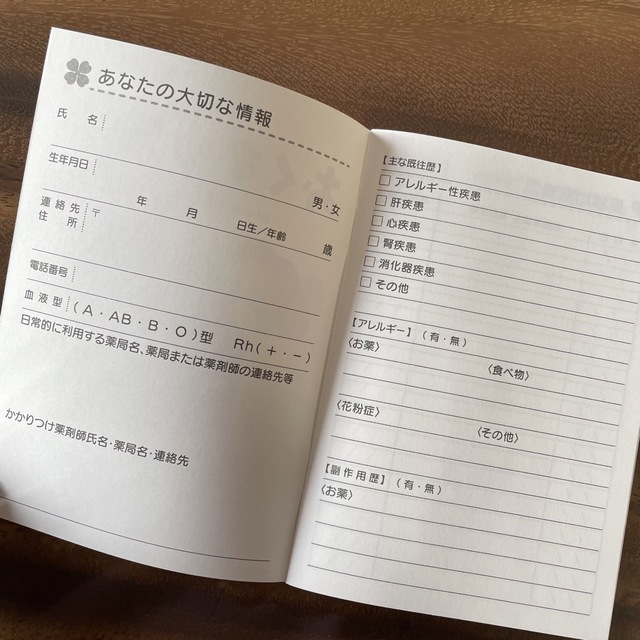 あなたの大切な情報
氏 名
男・女
生年月日
年 月 日生/年齢 歳
連絡先 〒
住 所
電話番号
血液型 (A・AB・B・O)型 Rh(+・-)
日常的に利用する薬局名、薬局または薬剤師の連絡先等
かかりつけ薬剤師氏名・薬局名・連絡先
【主な既往歴】
□ アレルギー性疾患
□ 肝疾患
□ 心疾患
□ 腎疾患
□ 消化器疾患
□ その他
【アレルギー】(有・無)
〈お薬〉 〈食べ物〉
〈花粉症〉 〈その他〉
【副作用歴】(有・無)
〈お薬〉